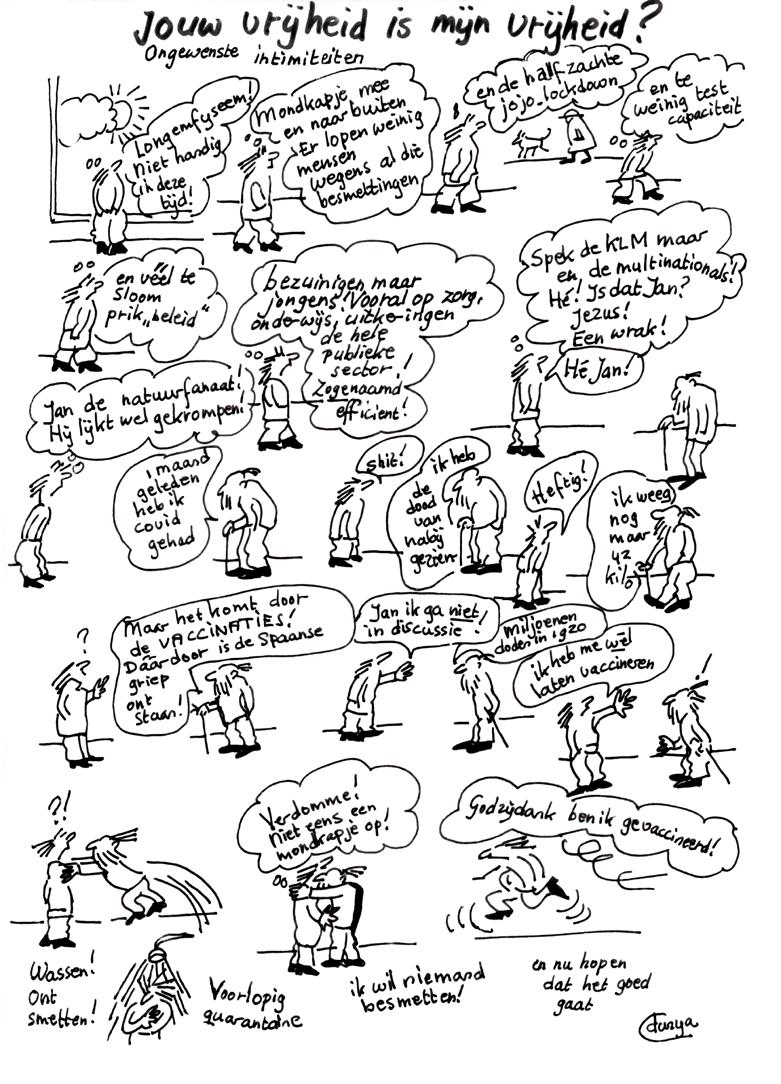 Jouw vrijheid is mijn vrijheid?
Ongewenste intimiteiten
Longemfyseem!
Niet handig
in deze
tijd!
Mondkapje mee
en naar buiten
Er lopen weinig
mensen
wegens al die
besmettingen
en de halfzachte
jojo-lockdown
en te
weinig test
capaciteit
en véél te
sloom
prik„beleid"
bezuinigen maar
jongens! Vooral op zorg,
onderwijs, uitkeringen
de hele
publieke
sector!
Zogenaamd
efficient!
Spek de KLM maar
en de multinationals!
Hé! Is dat Jan?
Jezus!
Een wrak!
Hé Jan!
Jan de natuurfanaat!
Hij lijkt wel gekrompen!
1 maand
geleden
heb ik
covid
gehad
shit!
ik heb
de
dood
van
nabij
gezien
Heftig!
ik weeg
nog
maar
42
kilo
?
Maar het komt door
de VACCINATIES!
Dáárdoor is de Spaanse
griep
ont
staan!
Jan ik ga niet
in discussie!
miljoenen
doden in 1920
ik heb me wél
laten vaccineren
!
?!
Verdomme!
Niet eens een
mondkapje op!
Godzijdank ben ik gevaccineerd!
Wassen!
Ont
smetten!
Voorlopig
quarantaine
ik wil niemand
besmetten!
en nu hopen
dat het goed
gaat